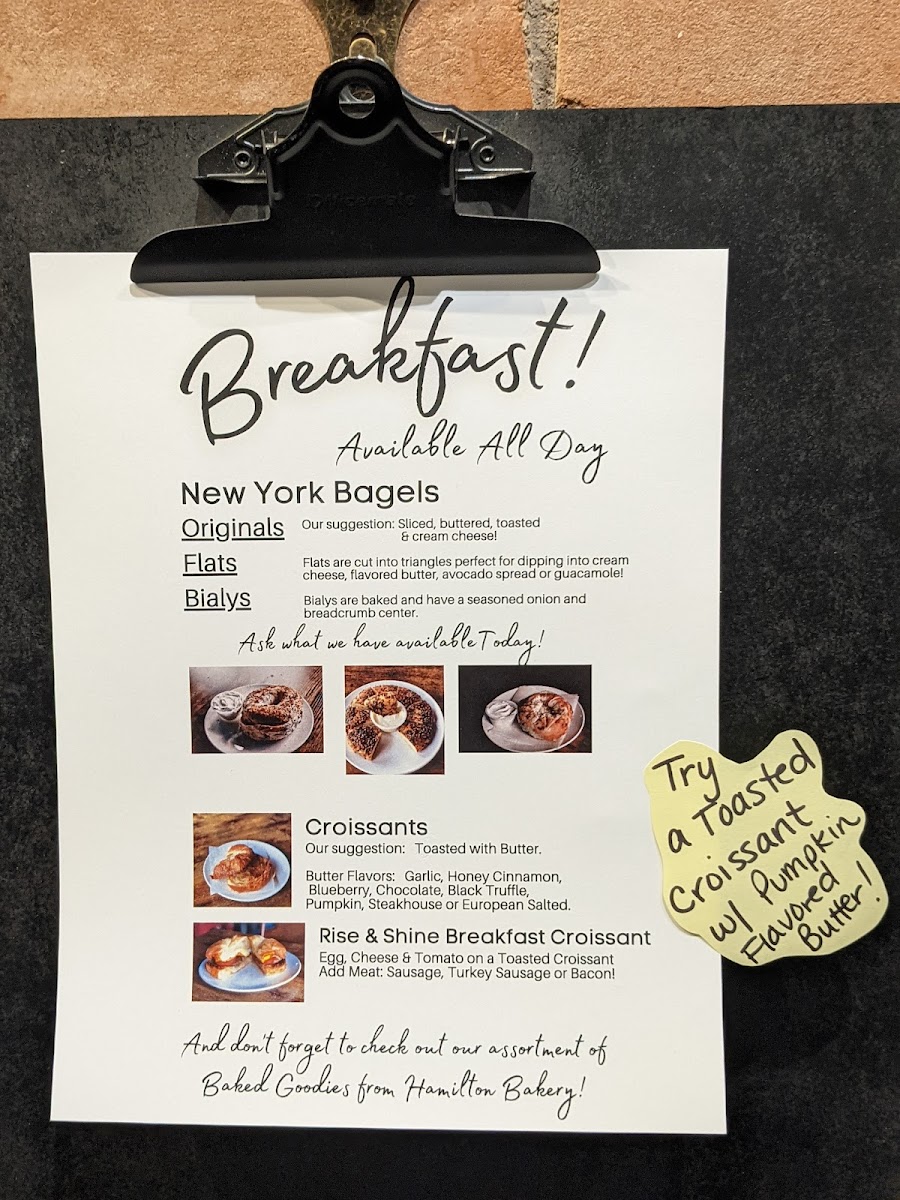 Breakfast!
Available All Day
New York Bagels
Originals
Our suggestion: Sliced, buttered, toasted
& cream cheese!
Flats
Flats are cut into triangles perfect for dipping into cream
cheese, flavored butter, avocado spread or guacamole!
Bialys
Bialys are baked and have a seasoned onion and
breadcrumb center.
Ask what we have available Today!
Croissants
Our suggestion: Toasted with Butter.
Butter Flavors: Garlic, Honey Cinnamon,
Blueberry, Chocolate, Black Truffle,
Pumpkin, Steakhouse or European Salted.
Rise & Shine Breakfast Croissant
Egg, Cheese & Tomato on a Toasted Croissant
Add Meat: Sausage, Turkey Sausage or Bacon!
And don't forget to check out our assortment of
Baked Goodies from Hamilton Bakery!
Try
a Toasted
Croissant
w/ Pumpkin
Flavored
Butter!